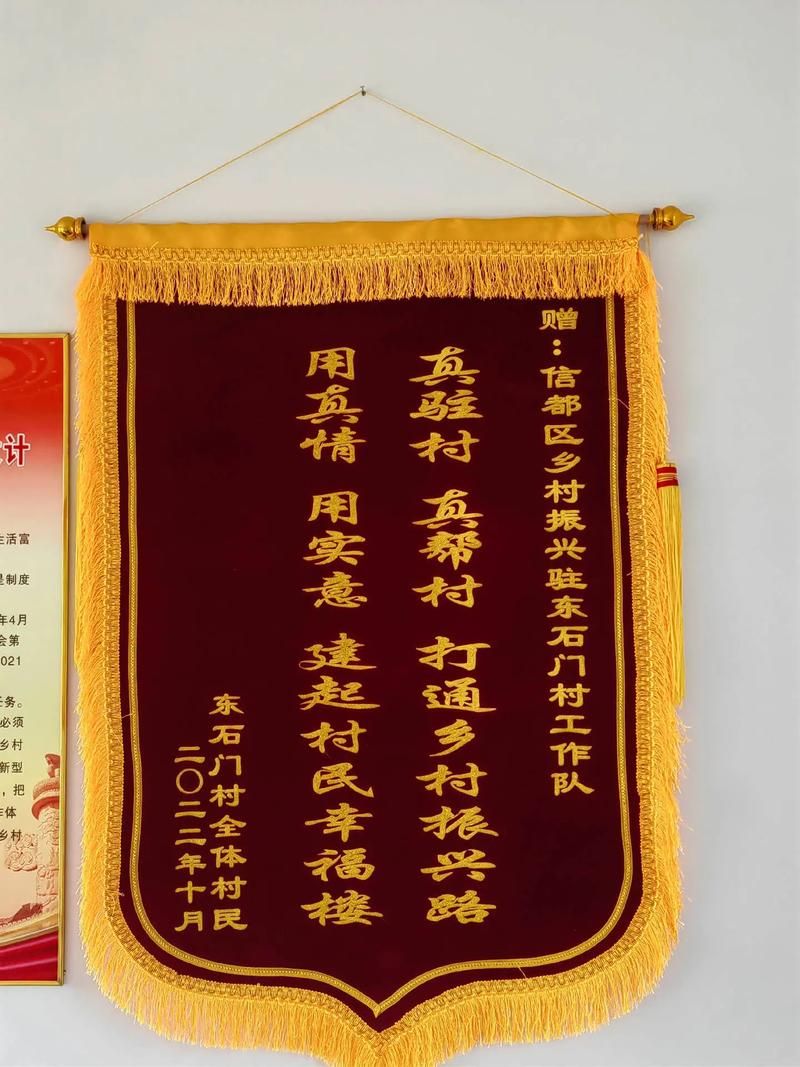 赠：信都区乡村振兴驻东石门村工作队
真驻村 真帮村 打通乡村振兴路
用真情 用实意 建起村民幸福楼
东石门村全体村民
二〇二二年十月
计
生活富
是制度
年4月
会第
2021
任务。
必须
乡村
新型
，把
体
乡村